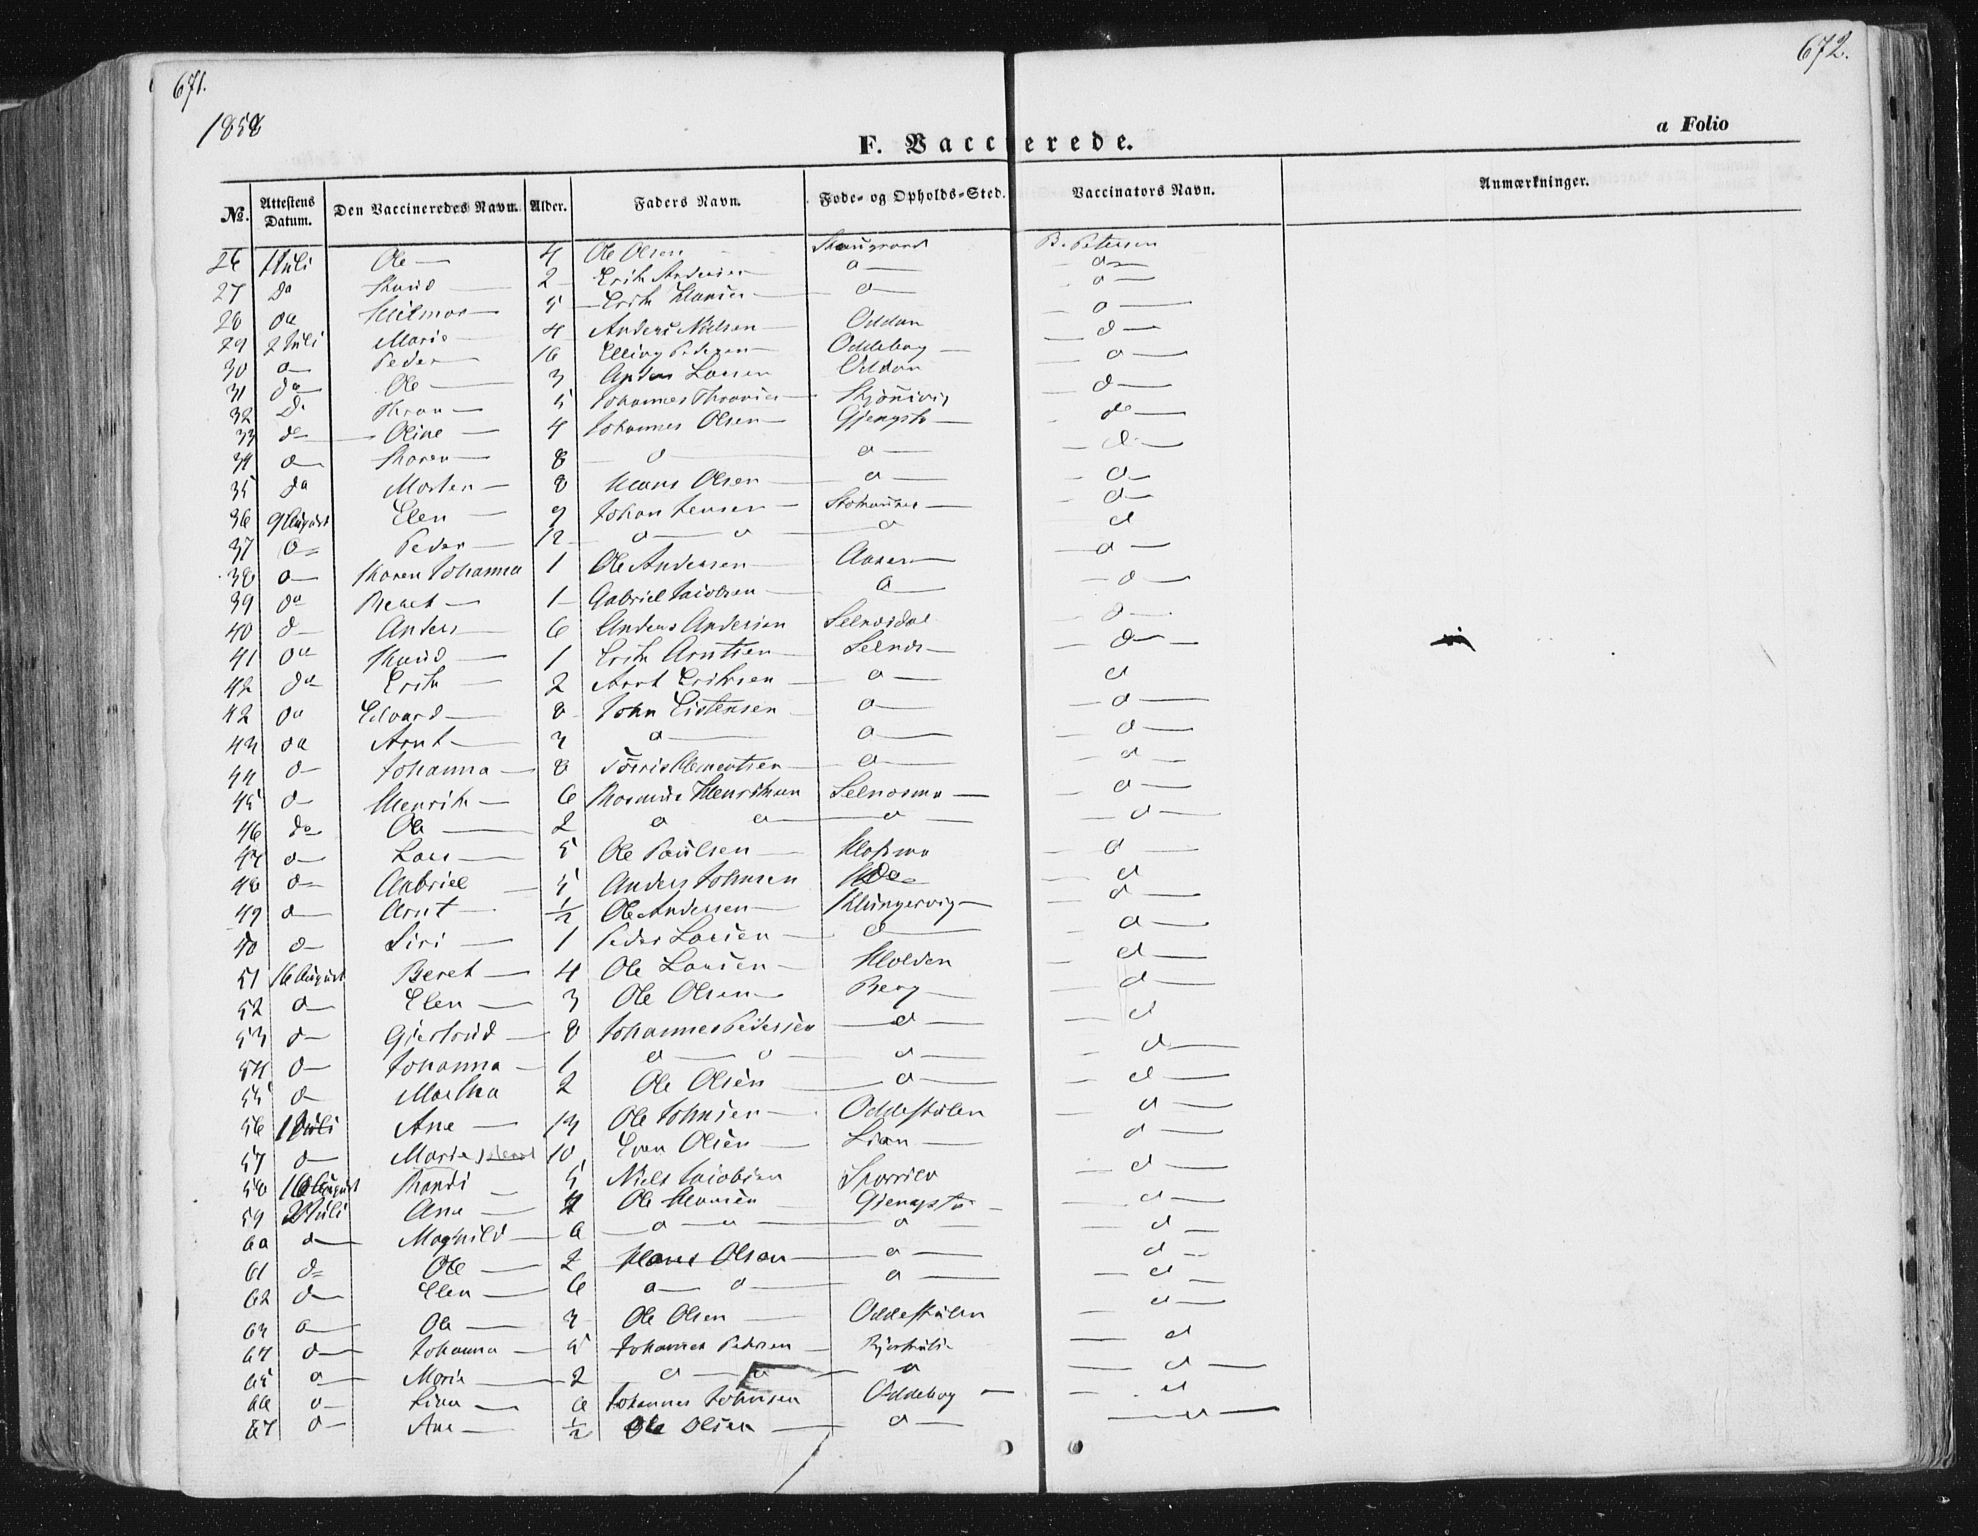 671.
672.
1858
a Folio
F. Vaccinerede.
№. Attestens Datum. Den Vaccineredes Navn. Alder. Faders Navn. Føde- og Opholds-Sted. Vaccinators Navn. Anmærkninger.
26 1 Juli Ole — 4 Ole Olsen B. Petersen
27 do 2 Erik Andersen — d — d —
28 do Hilmar — 5 Erik Hansen — d — d —
29 2 Juli Marie — 4 Anders Nielsen — Oddan d —
30 d — Peder — 10 Elling Pedersen — Oddebog — d —
31 do Ole — 3 Anders Larsen Oddan d —
32 D. 5 Johannes d —
33 do Oline — 4 Johannes Olsen — Gjengsto — do —
34 d — Karen — 8 — d — d — d —
35 do Morten — 8 Hans Olsen — d — d —
36 9 August Elen — 9 Johan Jensen — d —
37 d — Peder — 12 — d — d — d d
38 d — Karen Johanna 1 Ole Andersen — Aasen — d —
39 do Beret — 1 Gabriel Jacobsen — d — d —
40 d — Anders — 6 Anders Andersen Selnesdal d —
41 do 1 Erik Arntsen — Selnes — d —
42 do Erik — 2 Arnt Eriksen — d — d
42 do Edvard — 8 John Eistensen — d — d —
43 do Arnt — 3 d — d — d —
44 d — Johanna — 8 d — d —
45 d — Henrik — 6 Rasmus Henriksen Selnesmo — d —
46 do Ole — 2 d d — d — d —
47 d — Lars — 5 Ole Paulsen — d —
48 d — Gabriel — 5 Anders Johnsen d
49 d — Arnt — ½ Ole Andersen — Klungervig — d —
50 d — Siri — 1 Peder Larsen — d — d —
51 16 August Beret — 4 Ole Larsen — Holden d —
52 d — Elen — 3 Ole Olsen — Berg — d —
53 d — Gjertrud — 8 Johannes Pedersen — d — d
54 d — Johanna — 1 d — d — d — d —
55 d — Martha 2 Ole Olsen — d — d —
56 1 Juli Ane — 13 Ole Johnsen — Oddestulen d —
57 d — Marie 10 Even Olsen — Lian — d —
58 16 August Randi — 5 Niels Jacobsen d —
59 2 Juli Ane — 4 Ole Hansen — Gjengsto — d —
60 d — Magnild — 6 — d — d — d — d —
61 d — Ole — 2 Hans Olsen — d — d —
62 d — Elen — 6 d — d — d — d —
63 d — Ole — 3 Ole Olsen — Oddestulen d —
64 d — Johanna — 5 Johannes Pedersen — d
65 d — Marie — 2 d — d — d d —
66 d — Lina — 6 Johannes Johnsen Oddebog — d
67 d — Ane — ½ Ole Olsen — d — d —